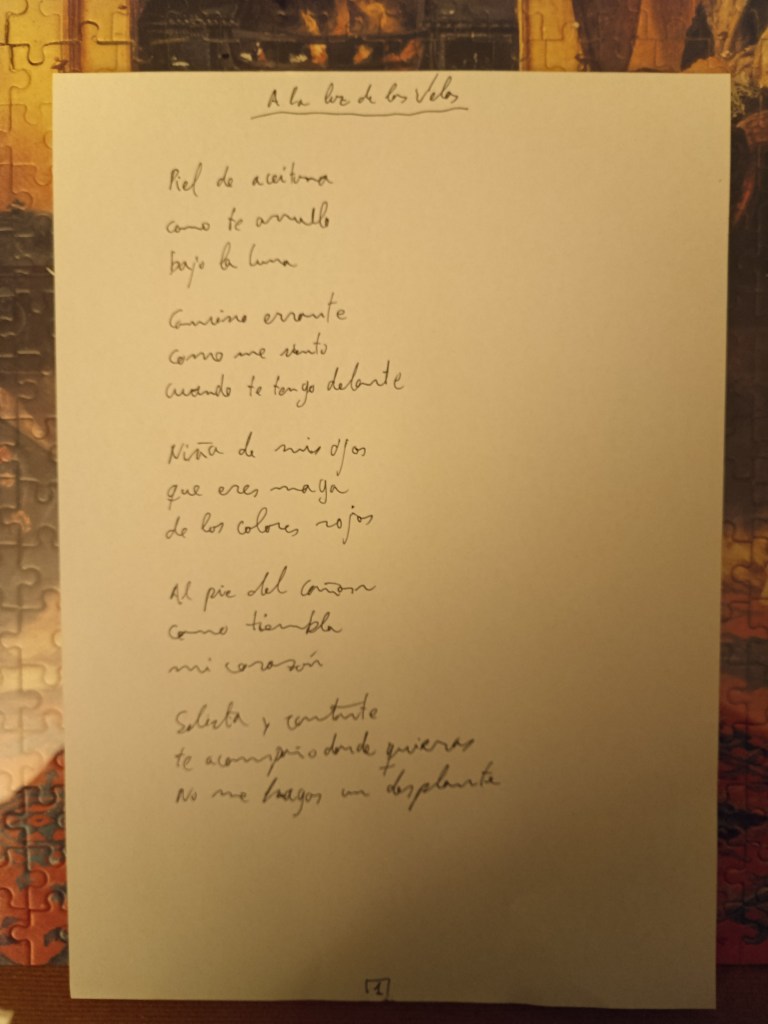 A la luz de las Velas
Piel de aceituna
como te arrullo
bajo la luna
Camino errante
como me siento
cuando te tengo delante
Niña de mis ojos
que eres maga
de los colores rojos
Al pie del cañon
como tiembla
mi corazón
Selecta y
te acompaño donde quieras
No me hagas un desplante
1